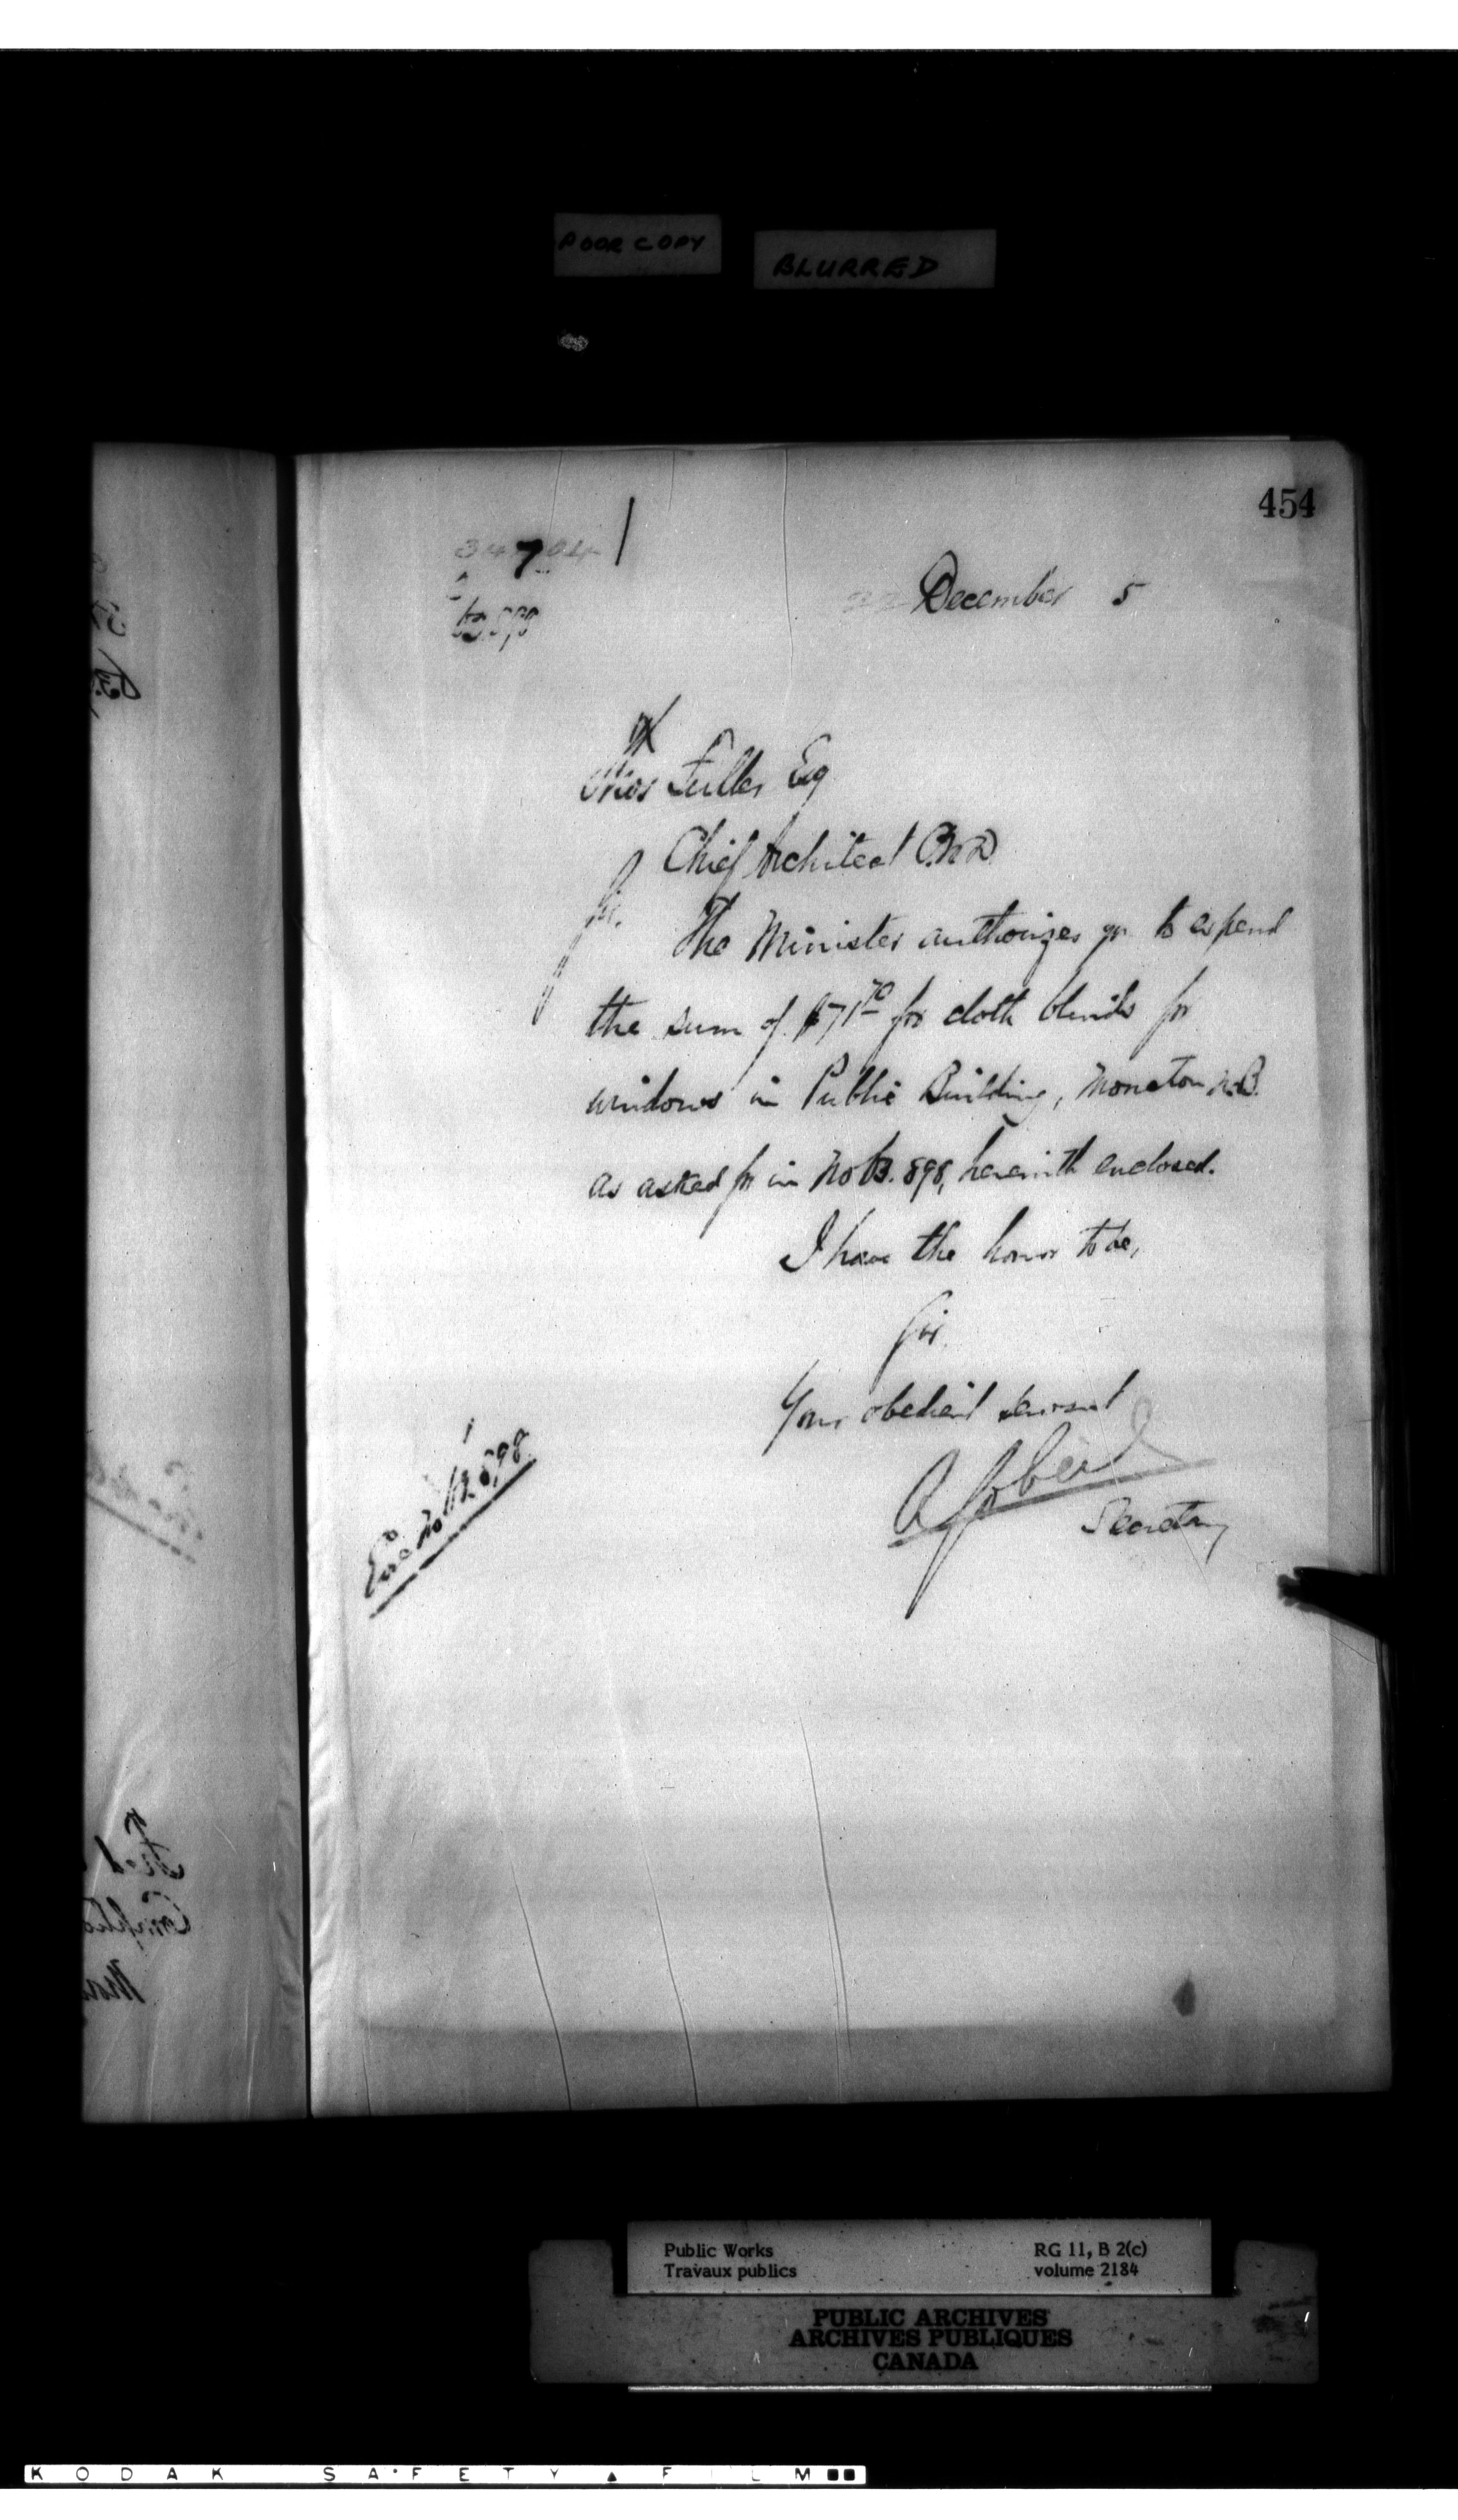 POOR COPY
BLURRED
454
63.898
December 5
Thos Fuller Esq
Chief Architect P.W.D
Sir.
The Minister authorizes yn to expend
the sum of $71 70 for cloth blinds for
windows in Public Building, Moncton N.B.
as asked for in No 63.898, herewith enclosed.
I have the honor to be,
Sir,
Your obedient servant
A Gobeil
Secretary
Enc No 63.898
Public Works
Travaux publics
RG 11, B 2(c)
volume 2184
PUBLIC ARCHIVES
ARCHIVES PUBLIQUES
CANADA
KODAK SAFETY FILM